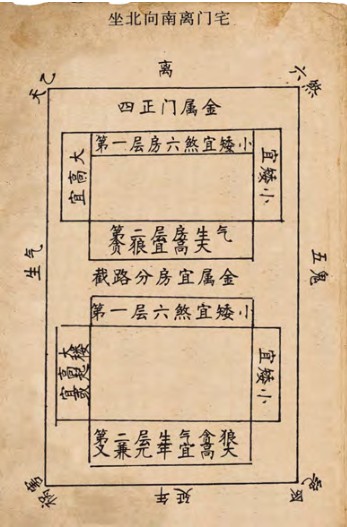 坐北向南离门宅
天乙
离
六煞
四正门属金
第一层房六煞宜矮小
宜高大
宜矮小
第二层房生气
贪狼宜高大
生气
五鬼
截路分房宜属金
第一层六煞宜矮小
宜矮小
第二层生气贪狼
又兼元年宜高大
祸害
延年